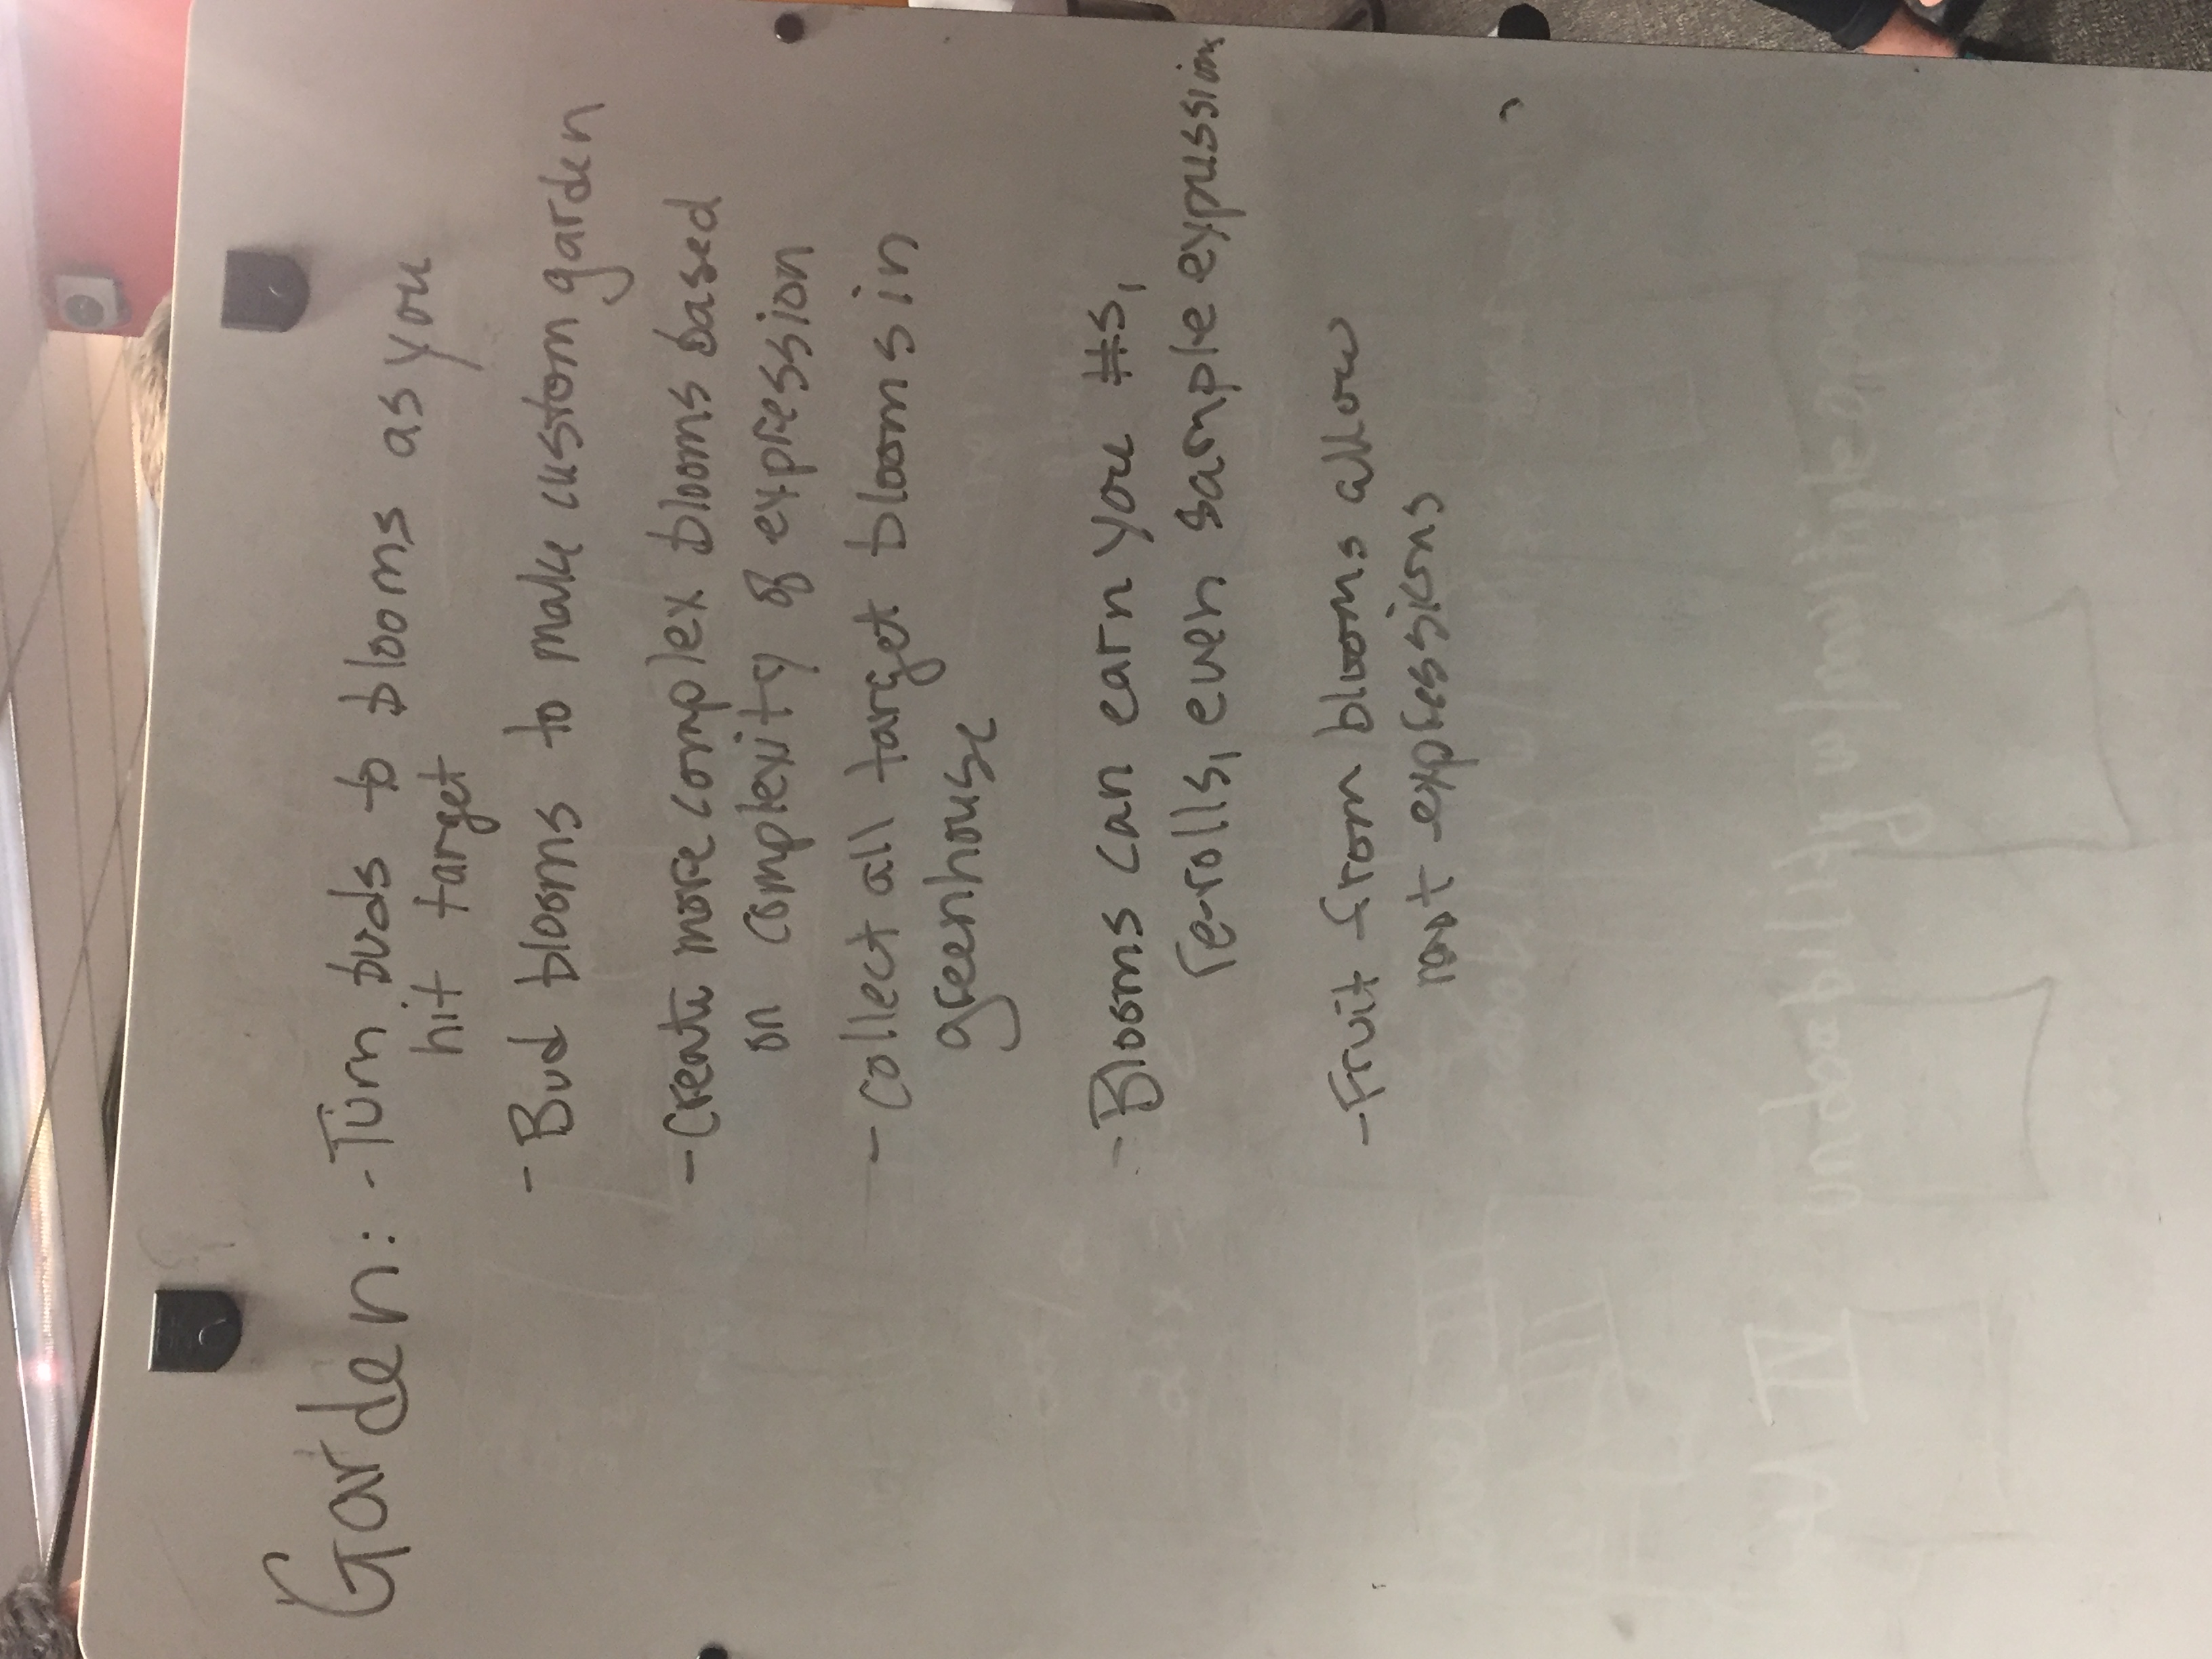 Garden: - Turn buds to blooms as you
hit target
- Bud blooms to make custom garden
- Create more complex blooms based
on complexity of expression
- Collect all target blooms in
greenhouse
- Blooms can earn you #s,
re-rolls, even sample expressions
- Fruit from blooms allow
expressions